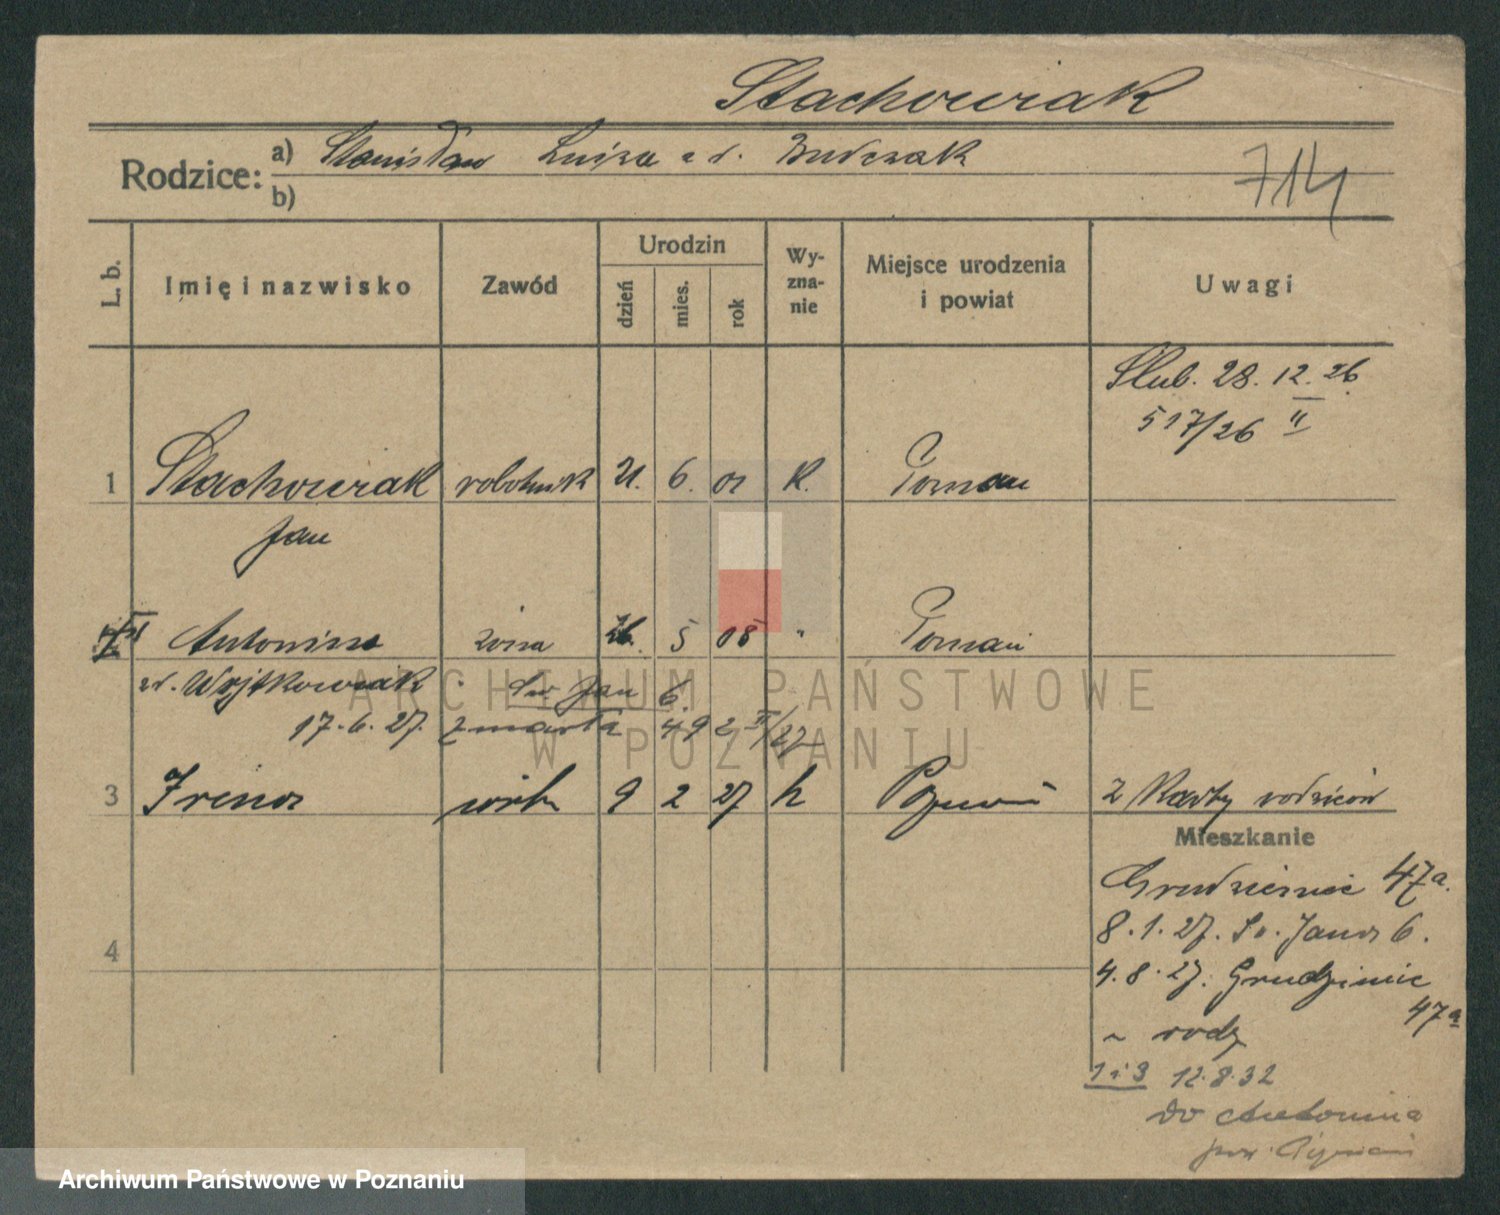 Stachowiak
Rodzice: a) Stanisław Luiza z d. Budczak
b)
714
L. b. Imię i nazwisko Zawód Urodzin dzień mies. rok Wyznanie Miejsce urodzenia i powiat Uwagi
Ślub. 28. 12. 26
517/26 II
1 Stachowiak robotnik 21. 6. 01 K. Poznań
Jan
Antonina żona 26. 5 05 " Poznań
zd. Wojtkowiak Św. Jan 6.
17. 6. 27. zmarła 492 II/27
3 Irena córka 9 2 27 k Poznań z Karty rodziców
Mieszkanie
Grudzieniec 47a.
8. 1. 27. Św. Jana 6.
4
4. 8. 27. Grudzieniec
47a
rodz
1 i 3 12. 8. 32
do Antonina
pow.
ARCHIWUM PAŃSTWOWE
W POZNANIU
Archiwum Państwowe w Poznaniu